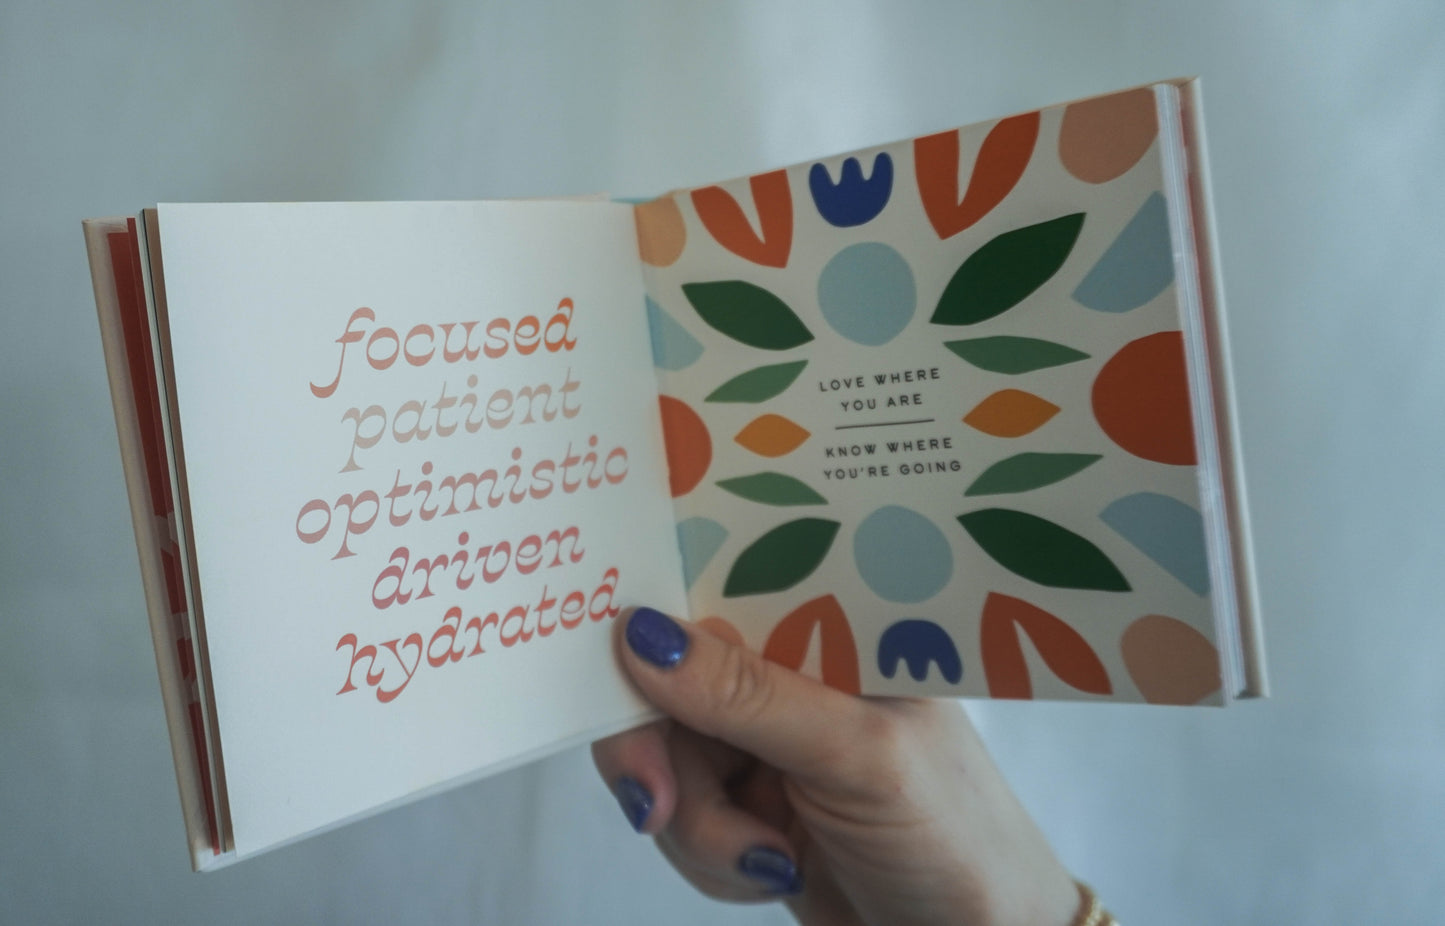 focused
patient
optimistic
driven
hydrated
LOVE WHERE
YOU ARE
KNOW WHERE
YOU'RE GOING